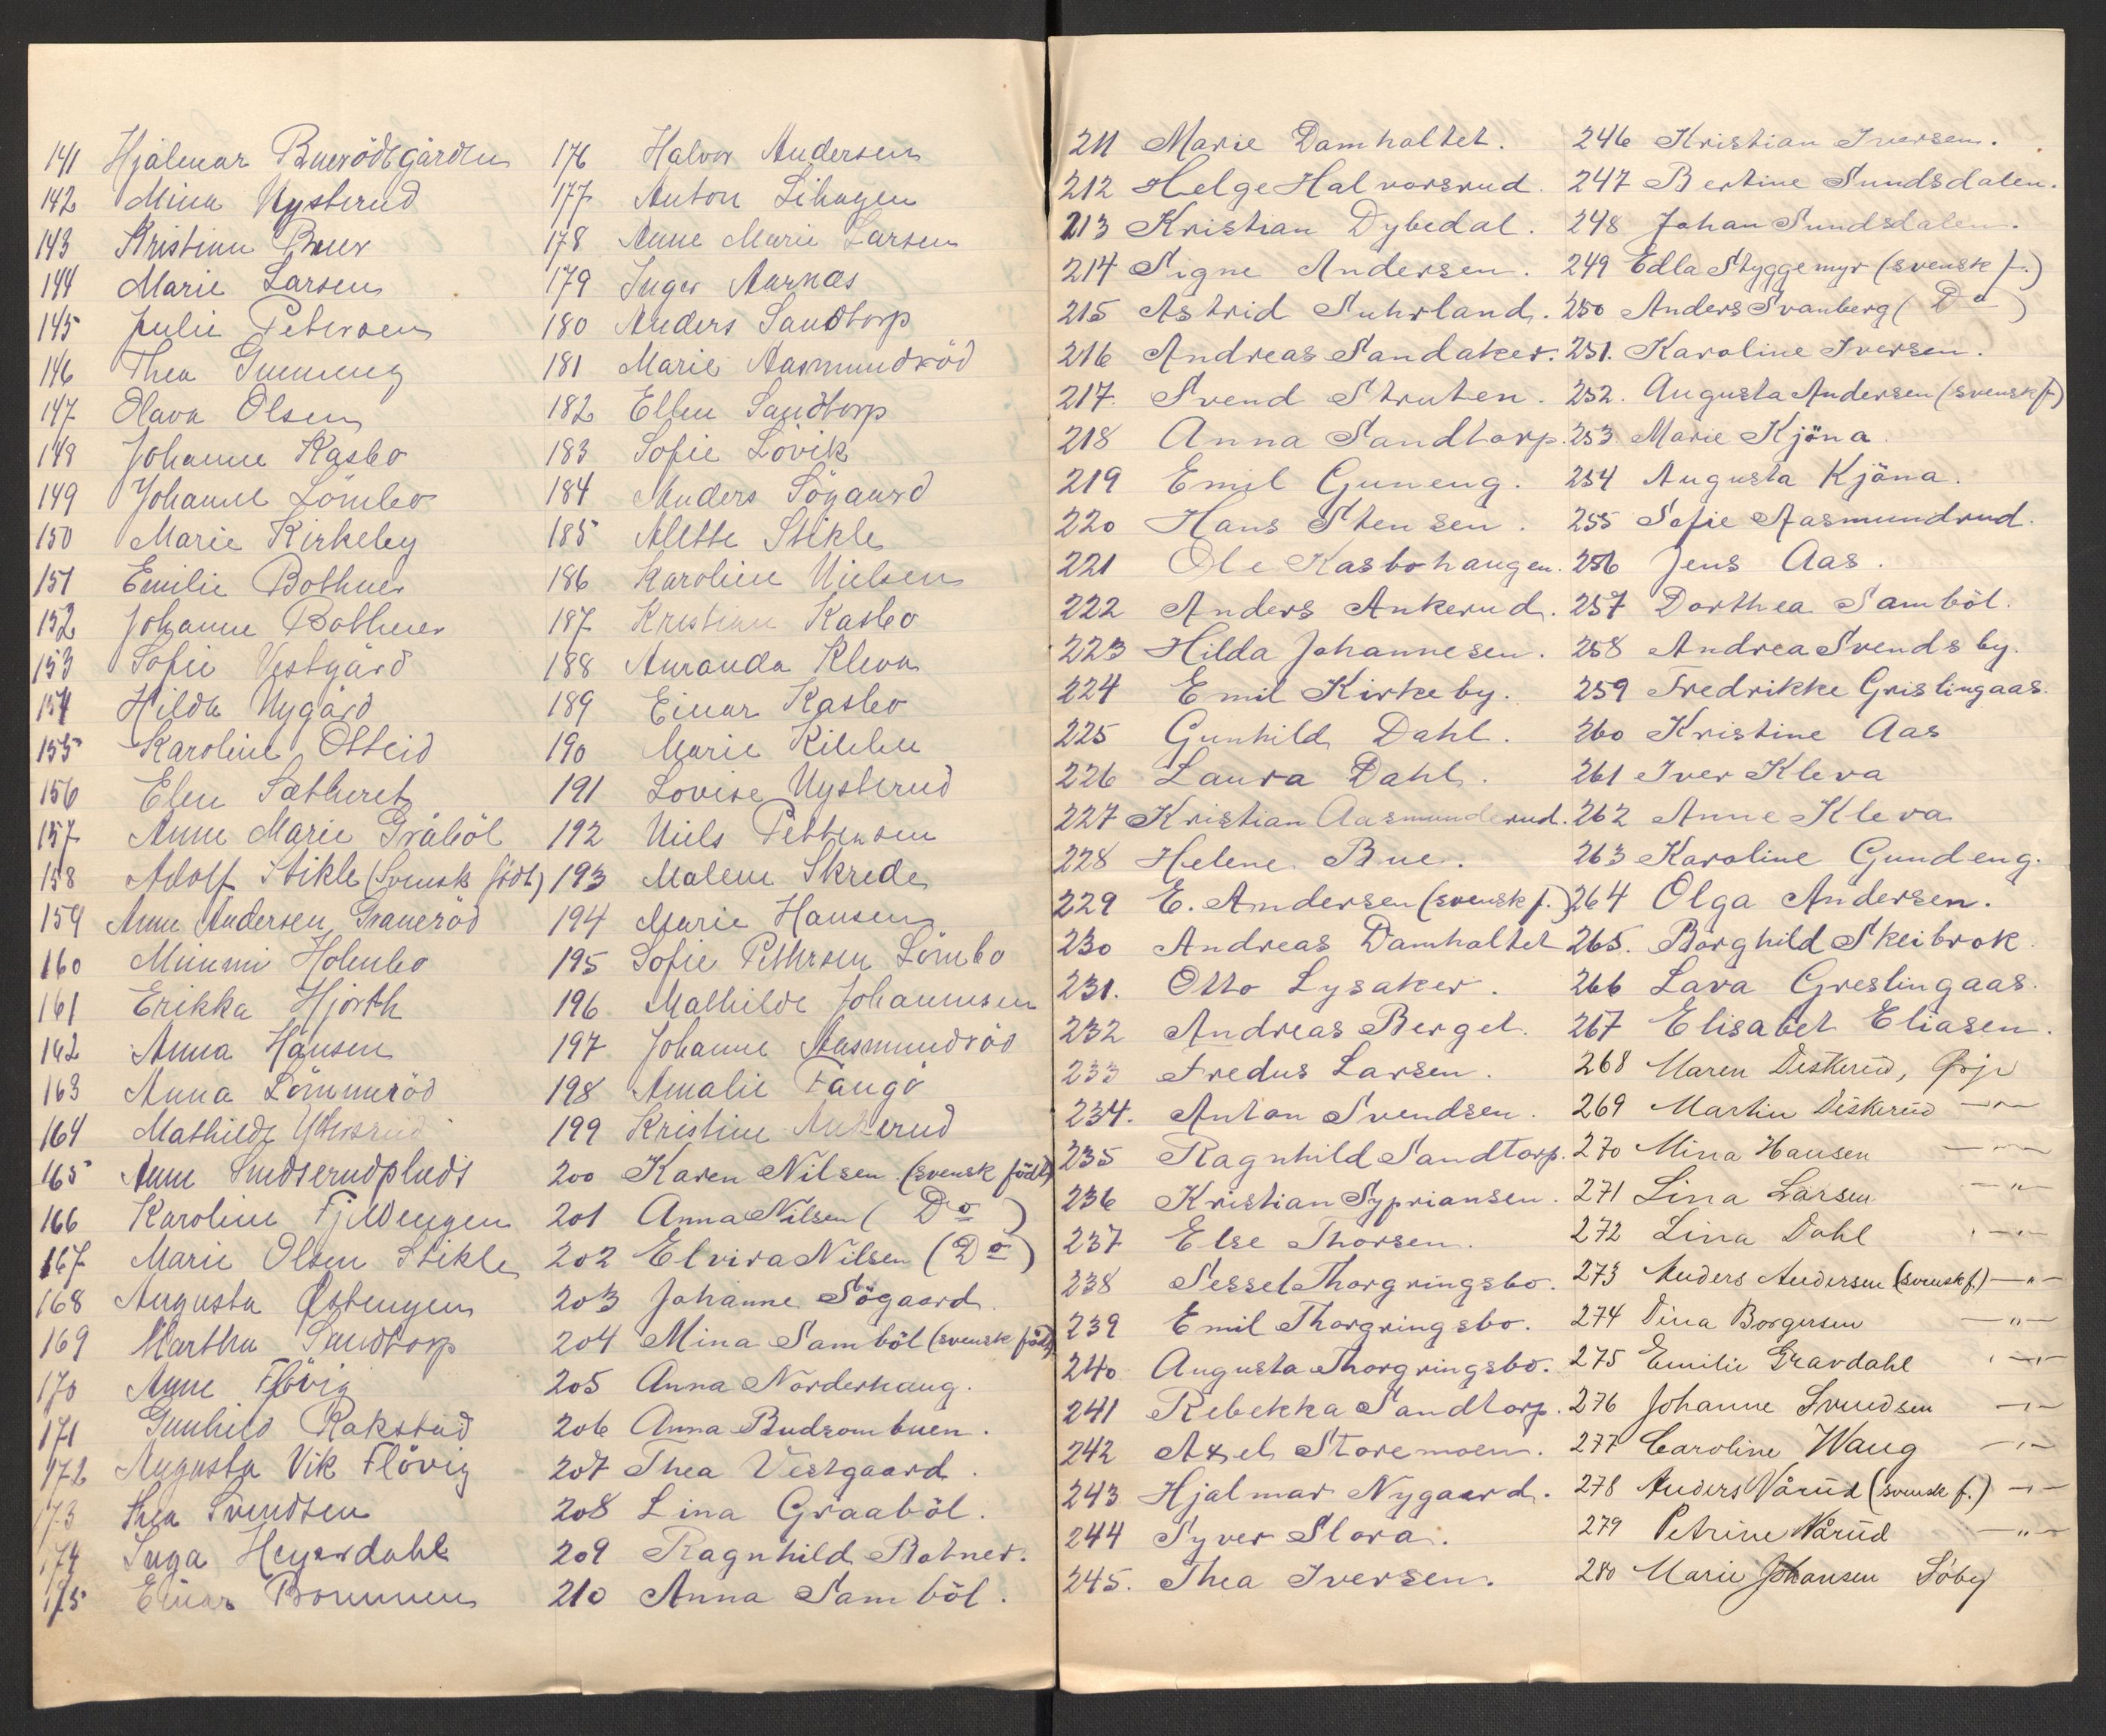 141 Hjalmar Buerödegården
142 Mina Nysterud
143 Kristian Buer
144 Marie Larsen
145 Julie Petersen
146 Thea Gunneng
147 Olava Olsen
148 Johanne Kasbo
149 Johanne Lömbo
150 Marie Kirkeby
151 Emilie Bothner
152 Johanne Bothner
153 Sofie Vestgård
154 Hilda Nygård
155 Karoline Otteid
156 Elen Sætheret
157 Anne Marie Gråböl
158 Adolf Stikle (Svensk födt)
159 Anne Andersen Graneröd
160 Mimmi Holmbo
161 Erikka Hjorth
162 Anna Hansen
163 Anna Lömmeröd
164 Mathilde
165 Anne
166 Karoline Fjeldengen
167 Marie Olsen Stikle
168 Augusta Østengen
169 Martha Sandtorp
170 Anne Flövig
171 Gunhild Rakstad
172 Augusta Vik Flövig
173 Thea Svendsen
174 Inga Heyerdahl
175 Einar Bommen
176 Halvor Andersen
177 Anton Lihagen
178 Anne Marie Larsen
179 Inger Aarnæs
180 Anders Sandtorp
181 Marie Aasmundröd
182 Ellen Sandtorp
183 Sofie Lövik
184 Anders Sögaard
185 Alette Stikle
186 Karoline Nielsen
187 Kristian Kasbo
188 Amanda Kleva
189 Einar Kasbo
190 Marie Kilebu
191 Lovise Nysterud
192 Niels Pettersen
193 Malene Skrede
194 Marie Hansen
195 Sofie Pettersen Lömbo
196 Mathilde Johannesen
197 Johanne Aasmundröd
198 Amalie Tangö
199 Kristine Ankerud
200 Karen Nilsen (svensk födt)
201 Anna Nilsen ( Do )
202 Elvira Nilsen (Do)
203 Johanne Sögaard.
204 Mina Samböl (svensk födt).
205 Anna Norderhaug.
206 Anna Budsombuen.
207 Thea Vestgaard.
208 Lina Graaböl.
209 Ragnhild Botner.
210 Anna Samböl.
211 Marie Damholtet.
212 Helge Halvorsrud.
213 Kristian Dybedal.
214 Signe Andersen.
215 Astrid Suhrland.
216 Andreas Sandaker.
217. Svend Struten.
218 Anna Sandtorp.
219 Emil Guneng.
220 Hans Stensen.
221 Ole Kasbohaugen.
222 Anders Ankerud.
223 Hilda Johannesen.
224 Emil Kirkeby.
225 Gunhild Dahl.
226 Laura Dahl.
227 Kristian Aasmunderud.
228 Helene Bue.
229 E. Andersen (svensk f.)
230 Andreas Damholtet
231. Otto Lysaker.
232 Andreas Berget.
233 Fredus Larsen.
234. Anton Svendsen.
235 Ragnhild Sandtorp.
236 Kristian Sypriansen.
237 Else Thorsen.
238 Sessel Thorgringsbo.
239 Emil Thorgringsbo.
240 Augusta Thorgringsbo.
241 Rebekka Sandtorp.
242 Axel Storemoen.
243 Hjalmar Nygaard.
244 Syver Slora.
245. Thea Iversen.
246 Kristian Iversen.
247 Bertine Sundsdalen.
248 Johan Sundsdalen.
249 Edla Styggemyr (svensk f.)
250 Anders Svanberg ( Do )
251. Karoline Iversen.
252. Augusta Andersen (svensk f.)
253. Marie Kjöna.
254 Augusta Kjöna.
255 Sofie Aasmundrud.
256 Jens Aas.
257 Dorthea Samböl.
258 Andrea Svendsby.
259 Fredrikke Grislingaas.
260 Kristine Aas
261 Iver Kleva
262 Anne Kleva
263 Karoline Gundeng.
264 Olga Andersen.
265. Borghild Skeibrok.
266 Lava Greslingaas.
267 Elisabet Eliasen.
268 Maren Diskerud, Ørje
269 Martin Diskerud —"—
270 Mina Hansen —"—
271 Lina Larsen —"—
272 Lina Dahl —"—
273 Anders Andersen (svensk f.) —"—
274 Dina Borgersen —"—
275 Emilie Gravdahl —"—
276 Johanne Svendsen —"—
277 Caroline Waug —"—
278 Anders Vårud (svensk f.) —"—
279 Petrine Vårud —"—
280 Marie Johansen Söby